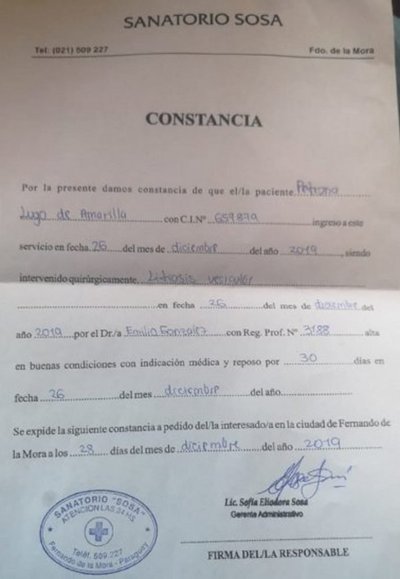 SANATORIO SOSA
Tel: (021) 509 227 Fdo. de la Mora
CONSTANCIA
Por la presente damos constancia de que el/la paciente Petrona
Lugo de Amarilla con C.I.Nº 659879 ingreso a este
servicio en fecha 26 del mes de diciembre del año 2019, siendo
intervenido quirúrgicamente Litiasis vesicular
en fecha 26 del mes de diciembre del
año 2019 por el Dr./a Emilio Gonzalez con Reg. Prof. Nº 3188 alta
en buenas condiciones con indicación médica y reposo por 30 días en
fecha 26 del mes diciembre del año
Se expide la siguiente constancia a pedido del/la interesado/a en la ciudad de Fernando de
la Mora a los 28 días del mes de diciembre del año 2019
SANATORIO "SOSA"
ATENCIÓN LAS 24 HS.
Teléf. 509.227
Fernando de la Mora - Paraguay
Lic. Sofía Eliodora Sosa
Gerente Administrativo
FIRMA DEL/LA RESPONSABLE